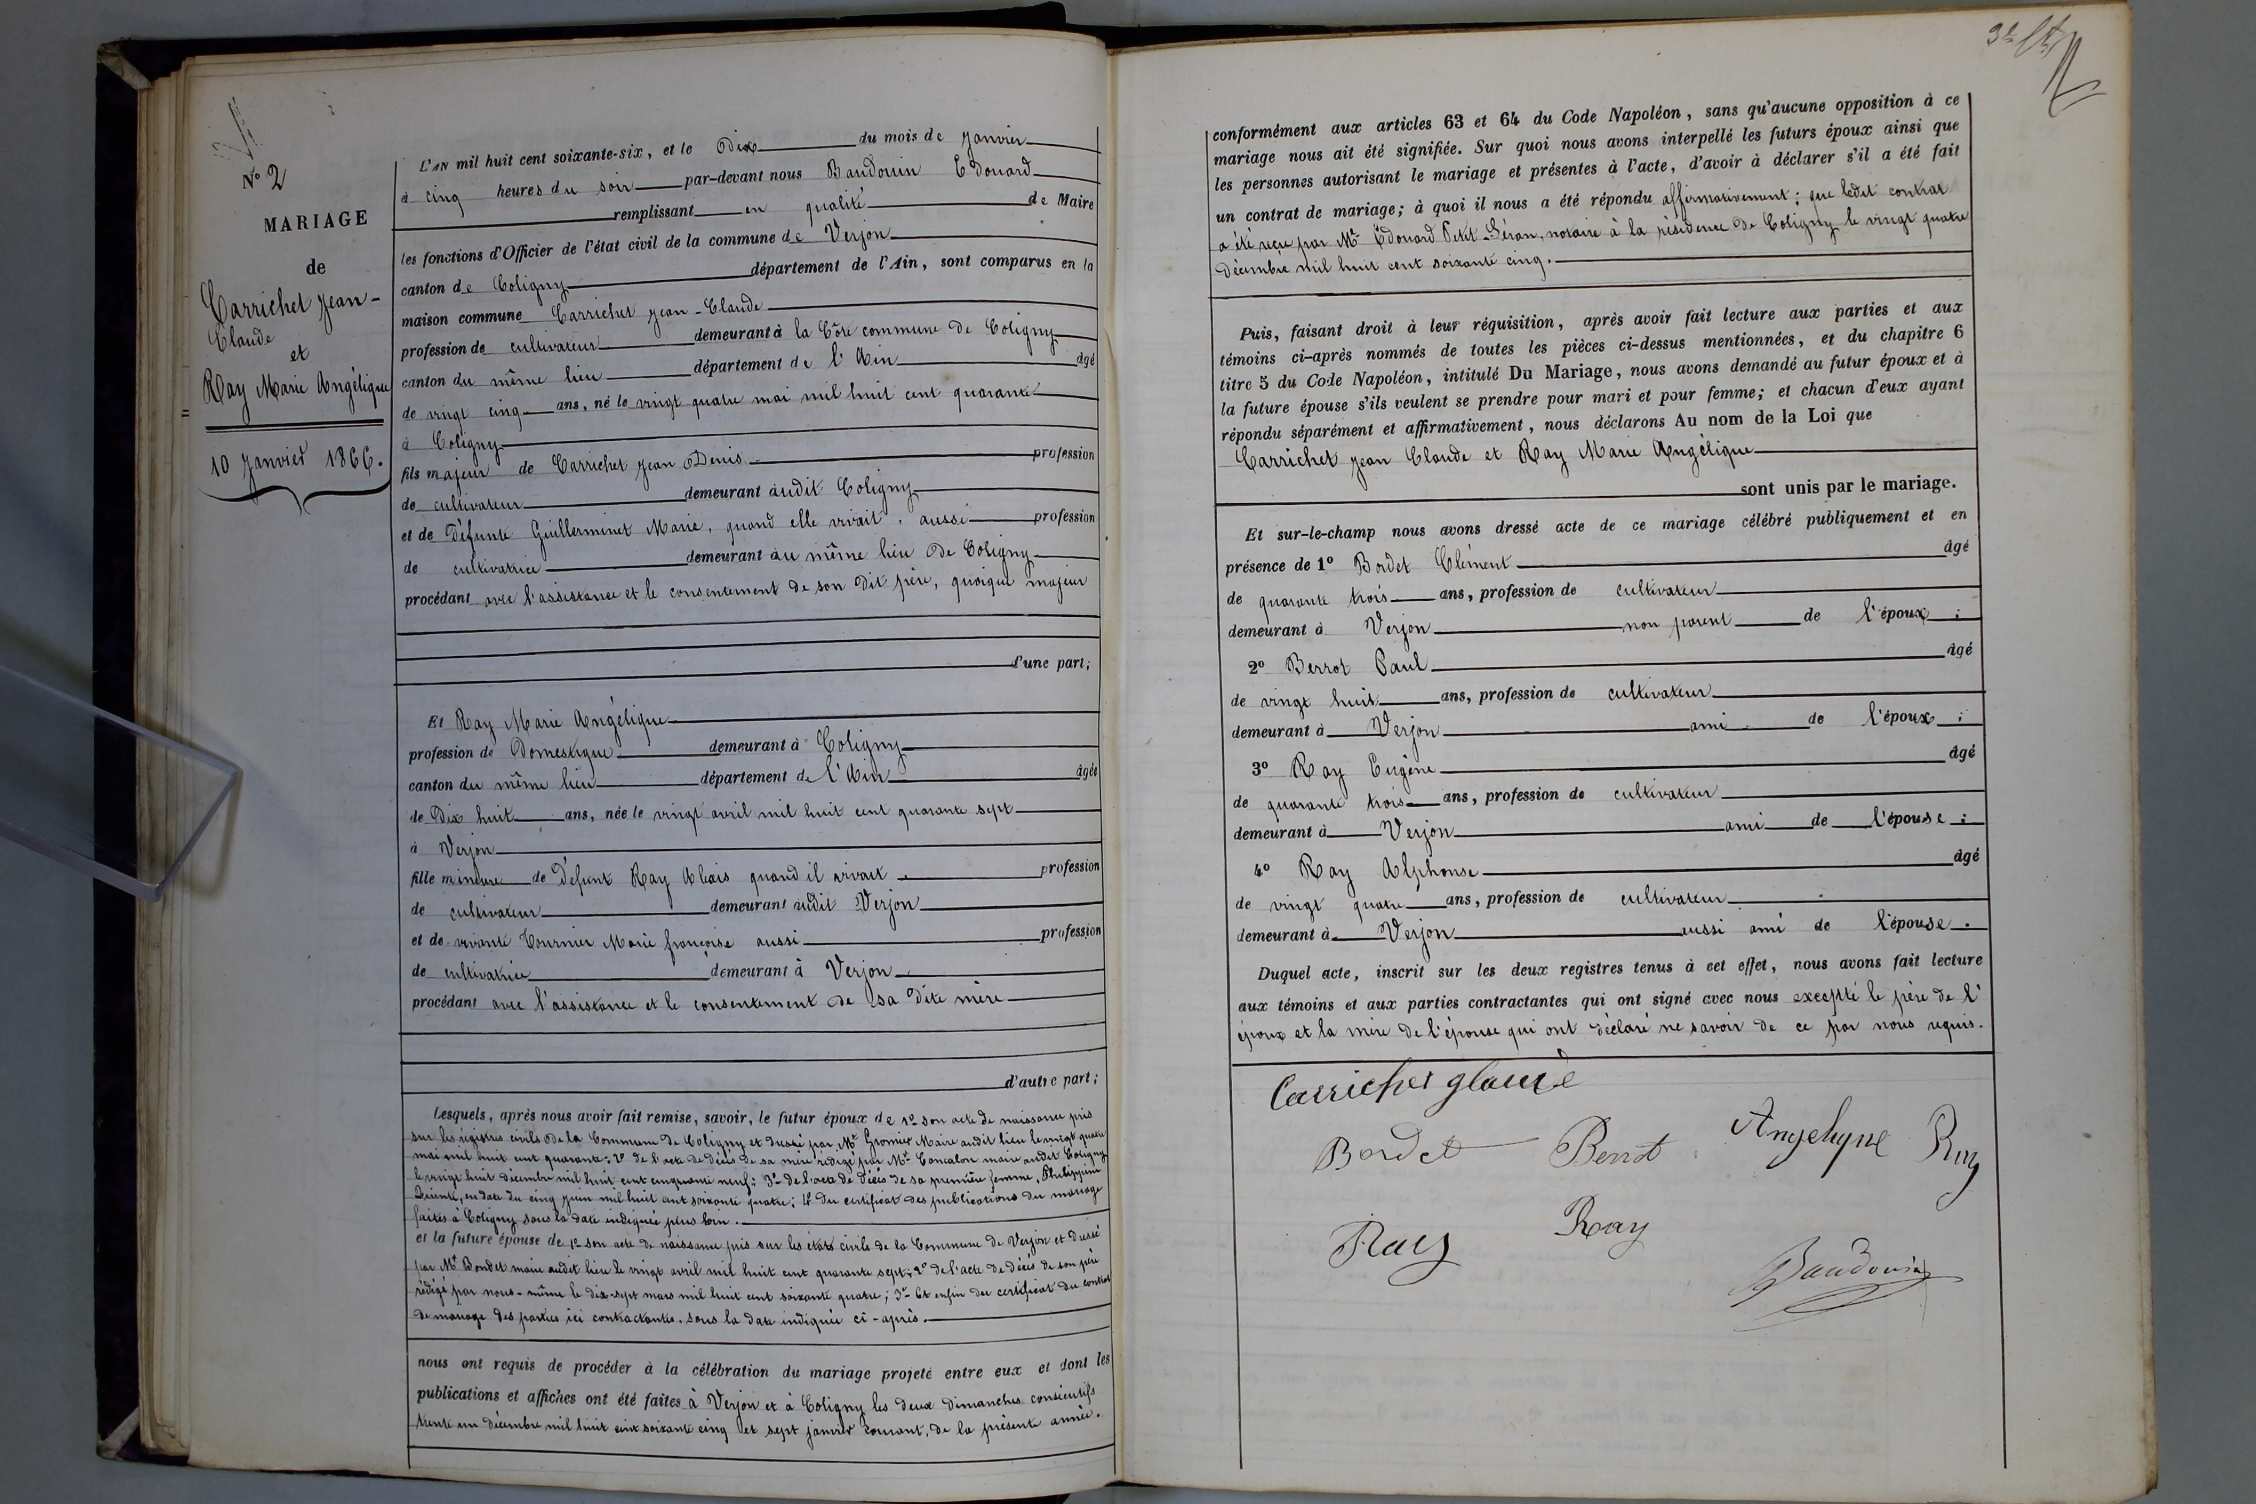 N° 2
MARIAGE
de
Carrichet Jean-
Claude
et
Ray Marie Angélique
10 Janvier 1866.
L'AN mil huit cent soixante-six, et le Dix du mois de Janvier
à cinq heures du soir par-devant nous Baudouin Edouard
remplissant en qualité de Maire
les fonctions d'Officier de l'état civil de la commune de Verjon
canton de Coligny département de l'Ain, sont comparus en la
maison commune Carrichet Jean-Claude
profession de cultivateur demeurant à la Côte commune de Coligny
canton du même lieu département de l'Ain âgé
de vingt cinq ans, né le vingt quatre mai mil huit cent quarante
à Coligny
fils majeur de Carrichet Jean Denis profession
de cultivateur demeurant audit Coligny
et de Défunte Guillerminet Marie, quand elle vivait, aussi profession
de cultivatrice demeurant au même lieu de Coligny
procédant avec l'assistance et le consentement de son dit père, quoique majeur
d'une part;
Et Ray Marie Angélique
profession de Domestique demeurant à Coligny
canton du même lieu département de l'Ain âgée
de Dix huit ans, née le vingt avril mil huit cent quarante sept
à Verjon
fille mineure de Défunt Ray Alexis quand il vivait profession
de cultivateur demeurant audit Verjon
et de vivante Tournier Marie françoise aussi profession
de cultivatrice demeurant à Verjon
procédant avec l'assistance et le consentement de sa dite mère
d'autre part;
Lesquels, après nous avoir fait remise, savoir, le futur époux de 1° son acte de naissance pris
sur les registres civils de la Commune de Coligny et dressé par Mr Gromier Maire audit lieu le vingt quatre
mai mil huit cent quarante; 2° de l'acte de décès de sa mère rédigé par Mr maire audit Coligny
le vingt huit décembre mil huit cent cinquante neuf; 3° de l'acte de décès de sa première femme, Philippine
en date du cinq juin mil huit cent soixante quatre; 4° du certificat des publications du mariage
faites à Coligny sous la date indiquée plus loin.
et la future épouse de 1° son acte de naissance pris sur les états civils de la Commune de Verjon et dressé
par Mr Bondet maire audit lieu le vingt avril mil huit cent quarante sept; 2° de l'acte de décès de son père
rédigé par nous-même le dix-sept mars mil huit cent soixante quatre; 3° Et enfin du certificat du contrat
de mariage des parties ici contractantes, sous la date indiquée ci-après.
nous ont requis de procéder à la célébration du mariage projeté entre eux et dont les
publications et affiches ont été faites à Verjon et à Coligny les deux dimanches consécutifs
trente un décembre mil huit cent soixante cinq et sept janvier courant, de la présente année.
conformément aux articles 63 et 64 du Code Napoléon, sans qu'aucune opposition à ce
mariage nous ait été signifiée. Sur quoi nous avons interpellé les futurs époux ainsi que
les personnes autorisant le mariage et présentes à l'acte, d'avoir à déclarer s'il a été fait
un contrat de mariage; à quoi il nous a été répondu affirmativement; que ledit contrat
a été reçu par Me Édouard Petit-Séran, notaire à la résidence de Coligny le vingt quatre
décembre mil huit cent soixante cinq.
Puis, faisant droit à leur réquisition, après avoir fait lecture aux parties et aux
témoins ci-après nommés de toutes les pièces ci-dessus mentionnées, et du chapitre 6
titre 5 du Code Napoléon, intitulé Du Mariage, nous avons demandé au futur époux et à
la future épouse s'ils veulent se prendre pour mari et pour femme; et chacun d'eux ayant
répondu séparément et affirmativement, nous déclarons Au nom de la Loi que
Carrichet Jean Claude et Ray Marie Angélique
sont unis par le mariage.
Et sur-le-champ nous avons dressé acte de ce mariage célébré publiquement et en
présence de 1° Bordet Clément âgé
de quarante trois ans, profession de cultivateur
demeurant à Verjon non parent de l'époux;
2° Berrot Paul âgé
de vingt huit ans, profession de cultivateur
demeurant à Verjon ami de l'époux;
3° Ray Eugène âgé
de quarante trois ans, profession de cultivateur
demeurant à Verjon ami de l'épouse;
4° Ray Alphonse âgé
de vingt quatre ans, profession de cultivateur
demeurant à Verjon aussi ami de l'épouse.
Duquel acte, inscrit sur les deux registres tenus à cet effet, nous avons fait lecture
aux témoins et aux parties contractantes qui ont signé avec nous excepté le père de l'
époux et la mère de l'épouse qui ont déclaré ne savoir de ce par nous requis.
Carrichet glaude
Bordet Berrot Angelique Ray
Ray Ray
Baudouin